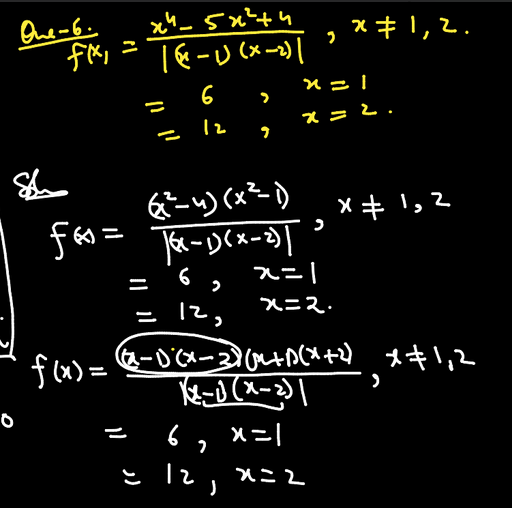 Que-6.
f(x) = x⁴ - 5x² + 4 / |(x-1)(x-2)| , x ≠ 1, 2.
= 6 , x = 1
= 12 , x = 2.
Sol
f(x) = (x²-4)(x²-1) / |(x-1)(x-2)| , x ≠ 1, 2
= 6 , x = 1
= 12, x = 2.
f(x) = (x-1)(x-2)(x+1)(x+2) / |(x-1)(x-2)| , x ≠ 1, 2
= 6 , x = 1
= 12 , x = 2